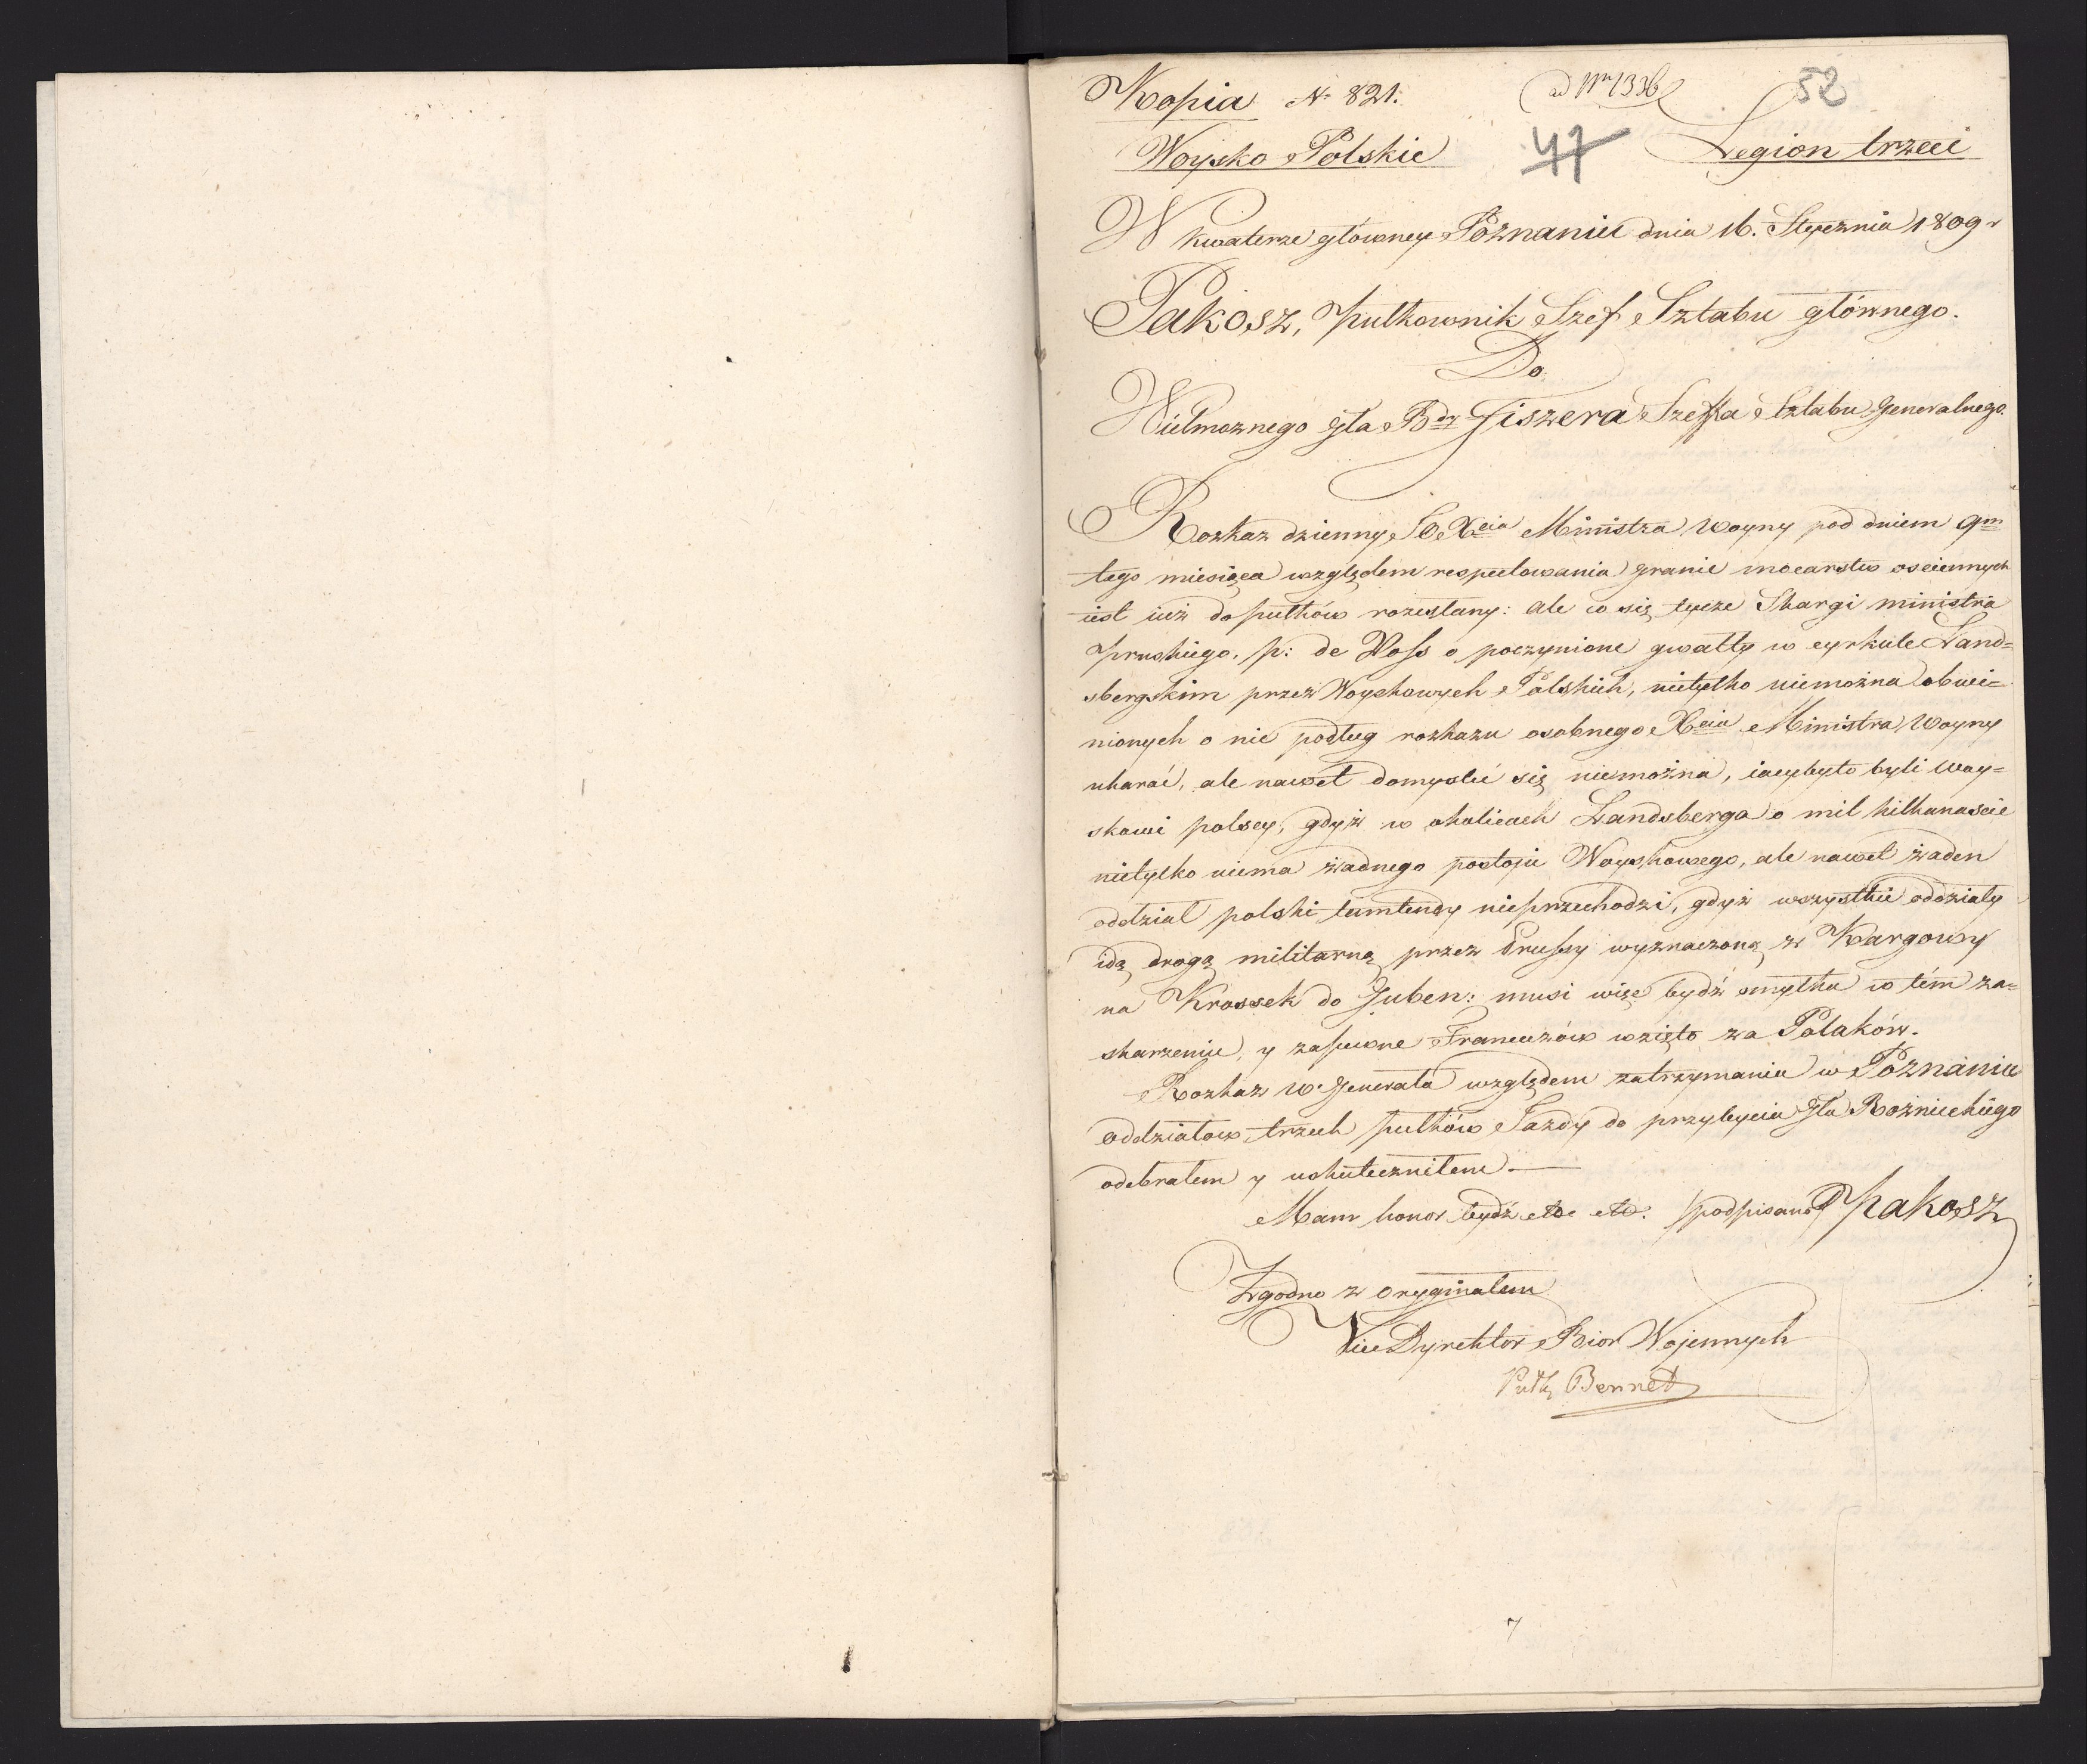 Kopia № 821.
ad Nm 1336
52
Woysko Polskie
47
Legion trzeci
W kwaterze główney Poznaniu dnia 16. Stycznia 1809 r
Pakosz, Pułkownik Szef Sztabu głównego.
Do
Wielmożnego Gła Bdy Fiszera Szeffa Sztabu Generalnego.
Rozkaz dzienny JO. Xcia Ministra Woyny pod dniem 9m
tego miesiąca względem respektowania granic mocarstw osciennych
iest iuż do pułków rozesłany: ale co się tycze Skargi ministra
pruskiego. p: de Voss o poczynione gwałty w cyrkule Land=
sbergskim przez Woyskowych Polskich, nietylko niemożna obwi=
nionych o nie podług rozkazu osobnego Xcia Ministra Woyny
ukarać, ale nawet domyslić się niemożna, iacyby to byli Woy=
skowi polscy, gdyż w okolicach Landsberga o mil kilkanascie
nietylko niema żadnego postoju Woyskowego, ale nawet żaden
oddział polski tamtendy nieprzechodzi, gdyż wszystkie oddziały
idą drogą militarną przez Prussy wyznaczoną z Kargowy
na Krossek do Guben: musi więc bydź omyłka w tém za=
skarzeniu, y zapewne Francuzów wzięto za Polaków.
Rozkaz W. Generała względem zatrzymania w Poznaniu
oddziałow trzech pułków Jazdy do przybycia Gła Rożnieckiego
odebrałem y uskuteczniłem —
Mam honor bydź etc etc. podpisano Pakosz
Zgodno z oryginałem
Vice Dyrektor Bior Wojennych
Pułk Bennet
7